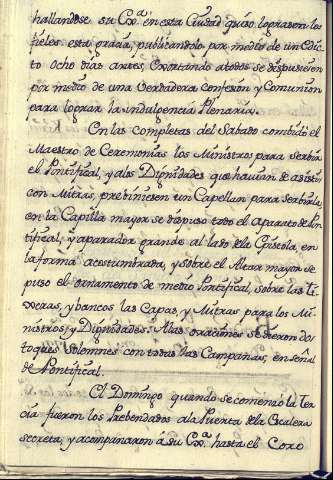 hallandose su Exª. en esta Ciudad quiso lograsen los
fieles esta gracia, publicandolo por medio de un Edic
to ocho dias antes exortando atodos se dispusiesen
por medio de una Verdadera confesion y Comunion
para lograr la indulgencia Plenaria.
En las completas del Sabado combidó el
Maestro de Ceremonias los Ministros para Servir
el Pontifical, y alas Dignidades que hauian de asistir
con Mitras, previniesen un Capellan para servirla,
en la Capilla mayor se dispuso todo el Aparato de Pon
tifical, y aparador grande al lado dela Epistola, en
la forma acostumbrada, y sobre el Altar mayor se
puso el ornamento de medio Pontifical, sobre las
y bancos las Capas, y Mitras para los Mi
nistros, y Dignidades. Alas oraciones se dieron do
toques solemnes con todas las Campanas, en señal
de Pontifical.
El Domingo quando se comenzó la Ter
cia fueron los Prebendados ala Puerta dela Escalera
secreta, y acompañaron á su Exª. hasta el Coro